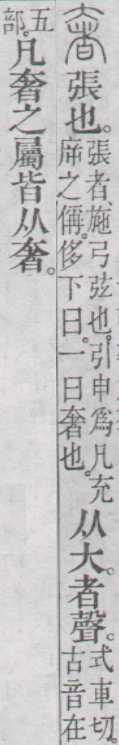 奢張也。張者施弓弦也。引申爲凡充㡿之偁。侈下曰。一曰奢也。从大。者聲。式車切。古音在
五部。凡奢之屬皆从奢。